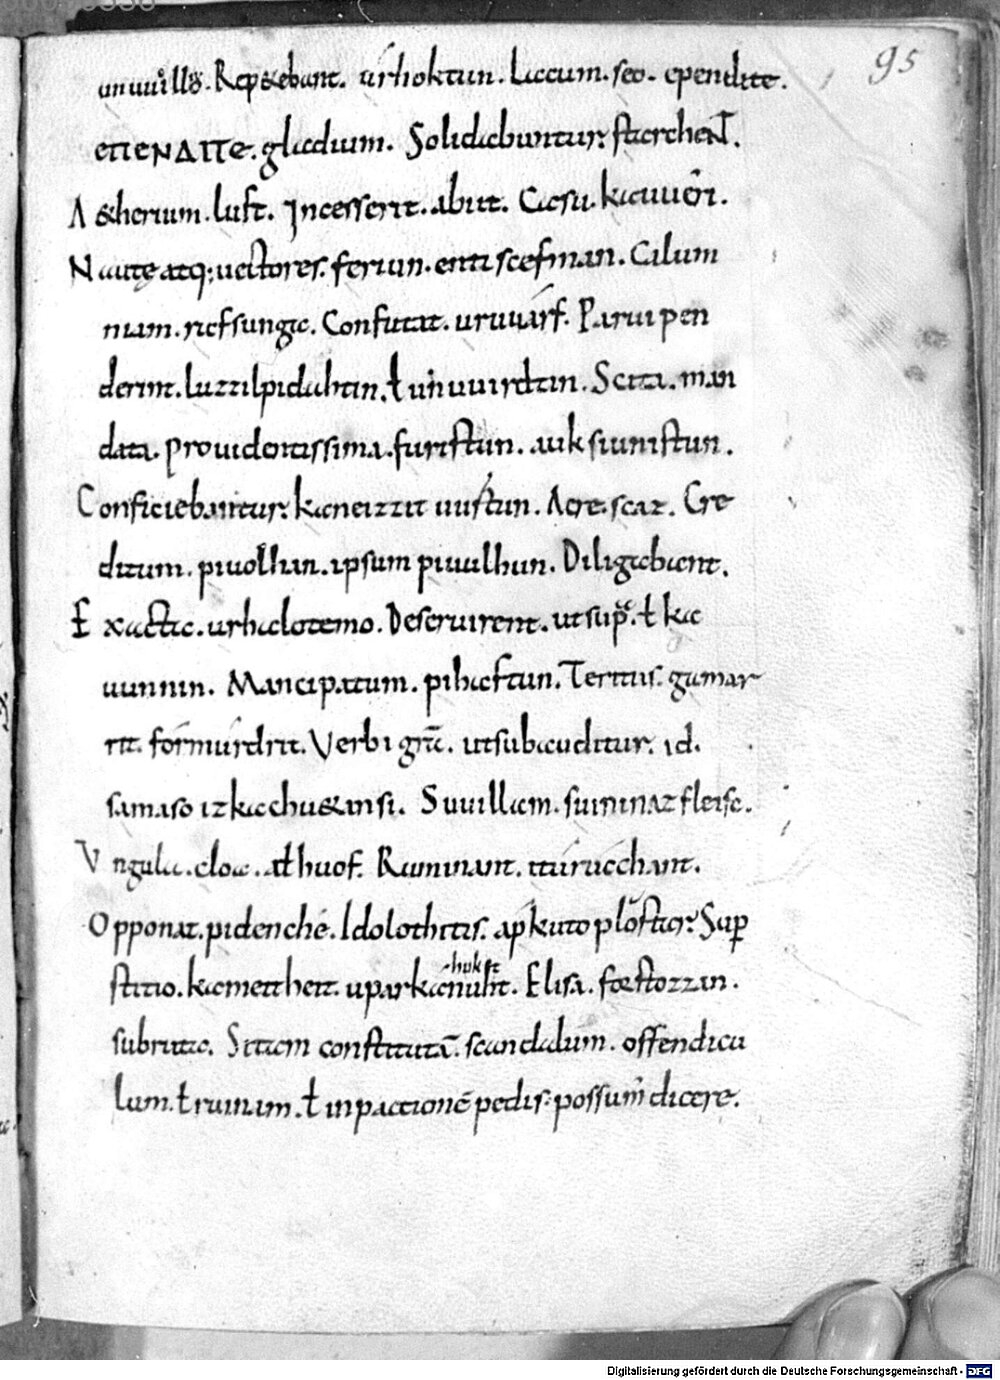 95
unuuills. Rep&ebant. urhoktun. Laccum. seo. ependite.
eπeNΔITe. gladium. Solidabuntur. starcheNT.
A&herium. luft. Incesserit. abiit. Casu. kauuóri.
Naute atq; uectores. feriun. enti scefman. Cilum
niam. nefsunga. Confutat. uruuarf. Parui pen
derint. luzzilpidahtin. ł unuuirdtin. Scita. man
data. Prouidentissima. furistun. auk siunistun.
Conficiebantur. kaneizzit uurtun. Acre. scaz. Cre
ditum. piuolhan. ipsum piuulhun. Diligebant.
Exacta. urhalotemo. Deseruirent. ut sup. ł ka
uunnin. Mancipatum. pihaftun. Territus. gamar
rit. fórmúrdrit. Verbi gra. ut subauditur. id.
samaso iz kachu&ansi. Suuillam. suininaz fleisc.
Vngula. cloa. ał huof. Ruminant. itárucchant.
Opponat. pidenche. Idolothitis. apkuto plostar. Sup
stitio. kameitheit. uparkanuht. Elisa. farstozzan.
-hukt
subruta. Sitam constitutā. scandalum. offendicu
lum. ł ruinam. ł inpactionē pedis. possum dicere.
Digitalisierung gefördert durch die Deutsche Forschungsgemeinschaft - DFG